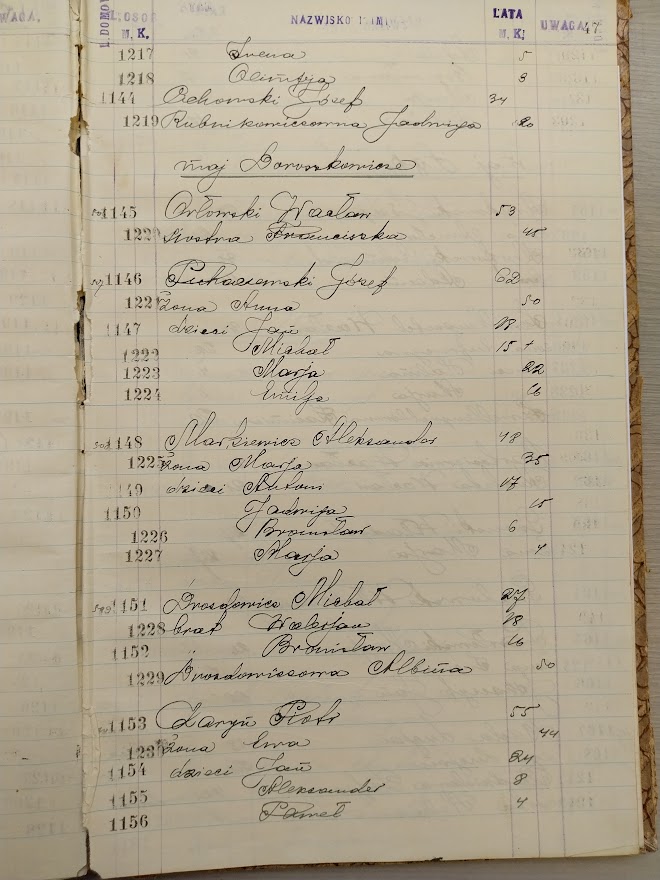 WAGA. L. DOMOW L. OSOB NAZWISKO I IMIĘ LATA UWAGA 47
M. K. M. K.
1217 Irena 5
1218 Olimpja 8
1144 Cichowski Józef 34
1219 Rubnikowiczowna Jadwiga 20
maj Doroszkowicze
1145 Orłowski Wacław 53
1220 siostra Franciszka 45
1146 Puhaczewski Józef 62
1221 żona Anna 50
1147 dzieci Jan 18
1222 Michał 15 +
1223 Marja 22
1224 Emilja 16
1148 Markiewicz Aleksander 48
1225 żona Marja 35
1149 dzieci Antoni 17
1150 Jadwiga 15
1226 Bronisław 6
1227 Marja 4
1151 Drozdowicz Michał 27
1228 brat Walerjan 18
1152 " Bronisław 16
1229 Drozdowiczowa Albina 50
1153 Zaryń Piotr 55
1230 żona Ewa 44
1154 dzieci Jan 24
1155 Aleksander 8
1156 Paweł 4